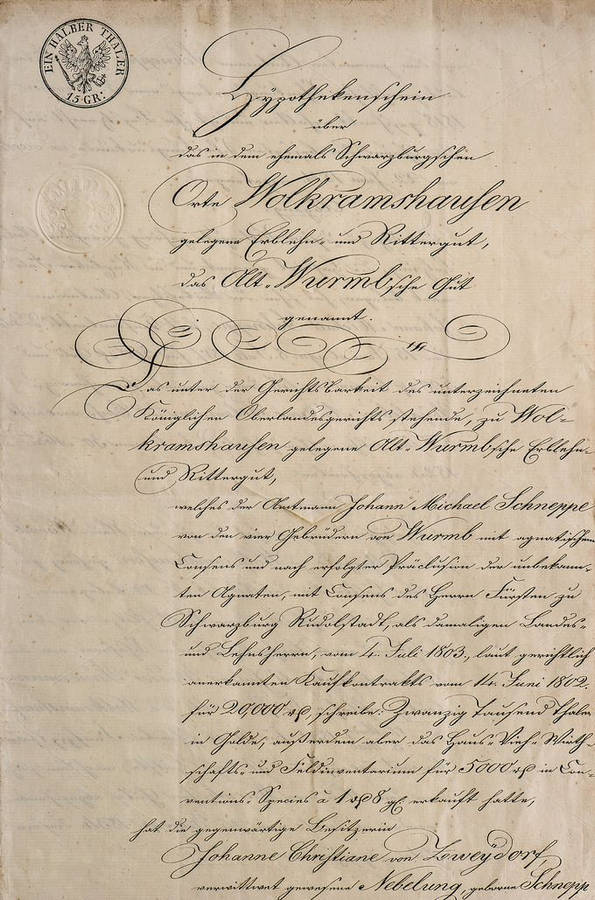 EIN HALBER THALER
15 GR:
Hÿpothekenschein
über
das in dem ehemals Schwarzburgschen
Orte Wolkramshausen
gelegene Erblehn- und Rittergut,
das Alt-Wurmbsche Gut
genannt.
Das unter der Gerichtsbarkeit des unterzeichneten
Königlichen Oberlandesgerichts stehende, zu Wol-
kramshausen gelegene Alt-Wurmbsche Erblehn-
und Rittergut,
welches der Amtmann Johann Michael Schneppe
von den vier Gebrüdern von Wurmb mit agnatischem
Consens und nach erfolgter Präclusion der unbekann-
ten Agnaten, mit Consens des Herrn Fürsten zu
Schwarzburg Rudolstadt, als damaligen Landes-
und Lehnsherrn, vom 4. Juli 1803., laut gerichtlich
anerkannten Kaufkontrakts vom 14. Juni 1802.
für 20,000 rℓ, schreibe: Zwanzig Tausend Thaler
in Golde, außerdem aber das Haus- Vieh- Wirth-
schafts- und Feldinventarium für 5000 rℓ in Con-
ventions-Species à 1 rℓ 8 gℓ erkauft hatte,
hat die gegenwärtige Besitzerin
Johanne Christiane von Zweÿdorf,
verwittwet gewesene Nebelung, geborne Schnepp